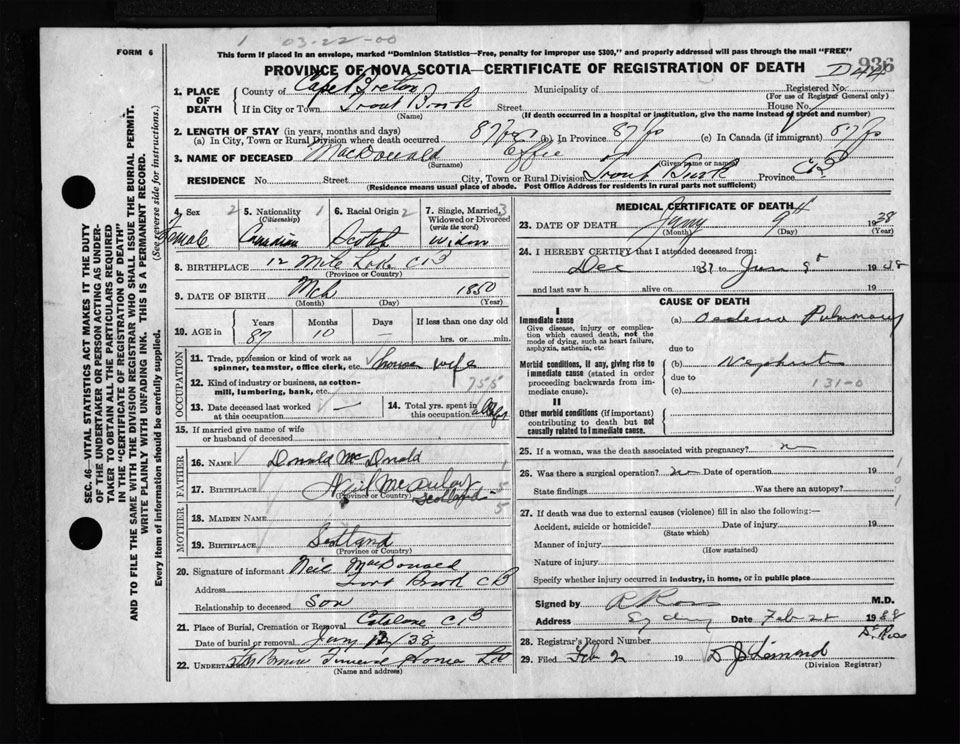 1 03-22-00
FORM 6
This form if placed in an envelope, marked "Dominion Statistics—Free, penalty for improper use $300," and properly addressed will pass through the mail "FREE"
936
PROVINCE OF NOVA SCOTIA—CERTIFICATE OF REGISTRATION OF DEATH
D44
SEC. 46—VITAL STATISTICS ACT MAKES IT THE DUTY
OF THE UNDERTAKER OR PERSON ACTING AS UNDER-
TAKER TO OBTAIN ALL THE PARTICULARS REQUIRED
IN THE "CERTIFICATE OF REGISTRATION OF DEATH"
AND TO FILE THE SAME WITH THE DIVISION REGISTRAR WHO SHALL ISSUE THE BURIAL PERMIT.
WRITE PLAINLY WITH UNFADING INK. THIS IS A PERMANENT RECORD.
Every item of information should be carefully supplied. (See reverse side for instructions.)
1. PLACE OF DEATH
County of Cape Breton Municipality of Registered No.
(For use of Registrar General only)
If in City or Town Trout Brook Street House No.
(Name) (If death occurred in a hospital or institution, give its name instead of street and number)
2. LENGTH OF STAY (in years, months and days)
(a) In City, Town or Rural Division where death occurred 87 yrs (b) In Province 87 yrs (c) In Canada (if immigrant) 87 yrs
3. NAME OF DECEASED MacDonald Effie
(Surname) (Given name or names)
RESIDENCE No. Street City, Town or Rural Division Trout Brook Province CB
(Residence means usual place of abode. Post Office Address for residents in rural parts not sufficient)
4. Sex 2
Female
5. Nationality 1
(Citizenship)
Canadian
6. Racial Origin 2
Scotch
7. Single, Married, 3
Widowed or Divorced
(write the word)
Widow
8. BIRTHPLACE 12 Mile CB
(Province or Country)
9. DATE OF BIRTH Mch 1850
(Month) (Day) (Year)
10. AGE in Years Months Days If less than one day old
87 10 — hrs. or min.
OCCUPATION
11. Trade, profession or kind of work as
spinner, teamster, office clerk, etc. house wife
12. Kind of industry or business, as cotton-
mill, lumbering, bank, etc. 755
13. Date deceased last worked
at this occupation —
14. Total yrs. spent in
this occupation
15. If married give name of wife
or husband of deceased
FATHER
16. Name Donald McDonald
17. Birthplace Neil McAulay Scotland
(Province or Country)
MOTHER
18. Maiden Name
19. Birthplace Scotland
(Province or Country)
20. Signature of informant Neil MacDonald
Address CB
Relationship to deceased Son
21. Place of Burial, Cremation or Removal Catalone CB
Date of burial or removal Jany 12/38
22. Undertaker Funeral Home Ltd
(Name and address)
MEDICAL CERTIFICATE OF DEATH
23. DATE OF DEATH Jany 9th 1938
(Month) (Day) (Year)
24. I HEREBY CERTIFY that I attended deceased from:
Dec 1937 to Jan 9th 1938
and last saw h alive on 19
CAUSE OF DEATH
I
Immediate cause
Give disease, injury or complica-
tion which caused death, not the
mode of dying, such as heart failure,
asphyxia, asthenia, etc.
(a) Oedema Pulmonary
due to
Morbid conditions, if any, giving rise to
immediate cause (stated in order
proceeding backwards from im-
mediate cause).
(b) Nephritis
due to
(c) 131-0
II
Other morbid conditions (if important)
contributing to death but not
causally related to immediate cause.
25. If a woman, was the death associated with pregnancy? n
26. Was there a surgical operation? n Date of operation 19
State findings Was there an autopsy?
27. If death was due to external causes (violence) fill in also the following:—
Accident, suicide or homicide? Date of injury 19
(State which)
Manner of injury
(How sustained)
Nature of injury
Specify whether injury occurred in industry, in home, or in public place
Signed by R Ross M.D.
Address Sydney Date Feb 1938
Dr. Ross
28. Registrar's Record Number
29. Filed Feb 2 19
(Division Registrar)